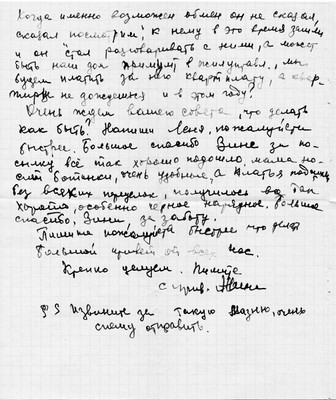 Когда именно возможен обмен он не сказал,
сказал посмотрим, к нему в это время зашли
и он стал разговаривать с ними, а может
быть наш дом примут в жилуправл., мы
будем платить за него квартплату, а квар-
тиры не дождемся и в этом году?
Очень ждем вашего совета, что делать
как быть? Напиши Леня, пожалуйста
быстрее. Большое спасибо Зине за по-
сылку всё так хорошо подошло, мама но-
сит ботинки, очень удобные, а платья
без всяких, получилось так
хорошо, особенно черное нарядное. Большое
спасибо, Зина за заботу.
Пишите пожалуйста быстрее что делать
Большой привет от всех нас.
Крепко целуем. Пишите
с прив.
P S Извините за такую мазню, очень
спешу отправить.